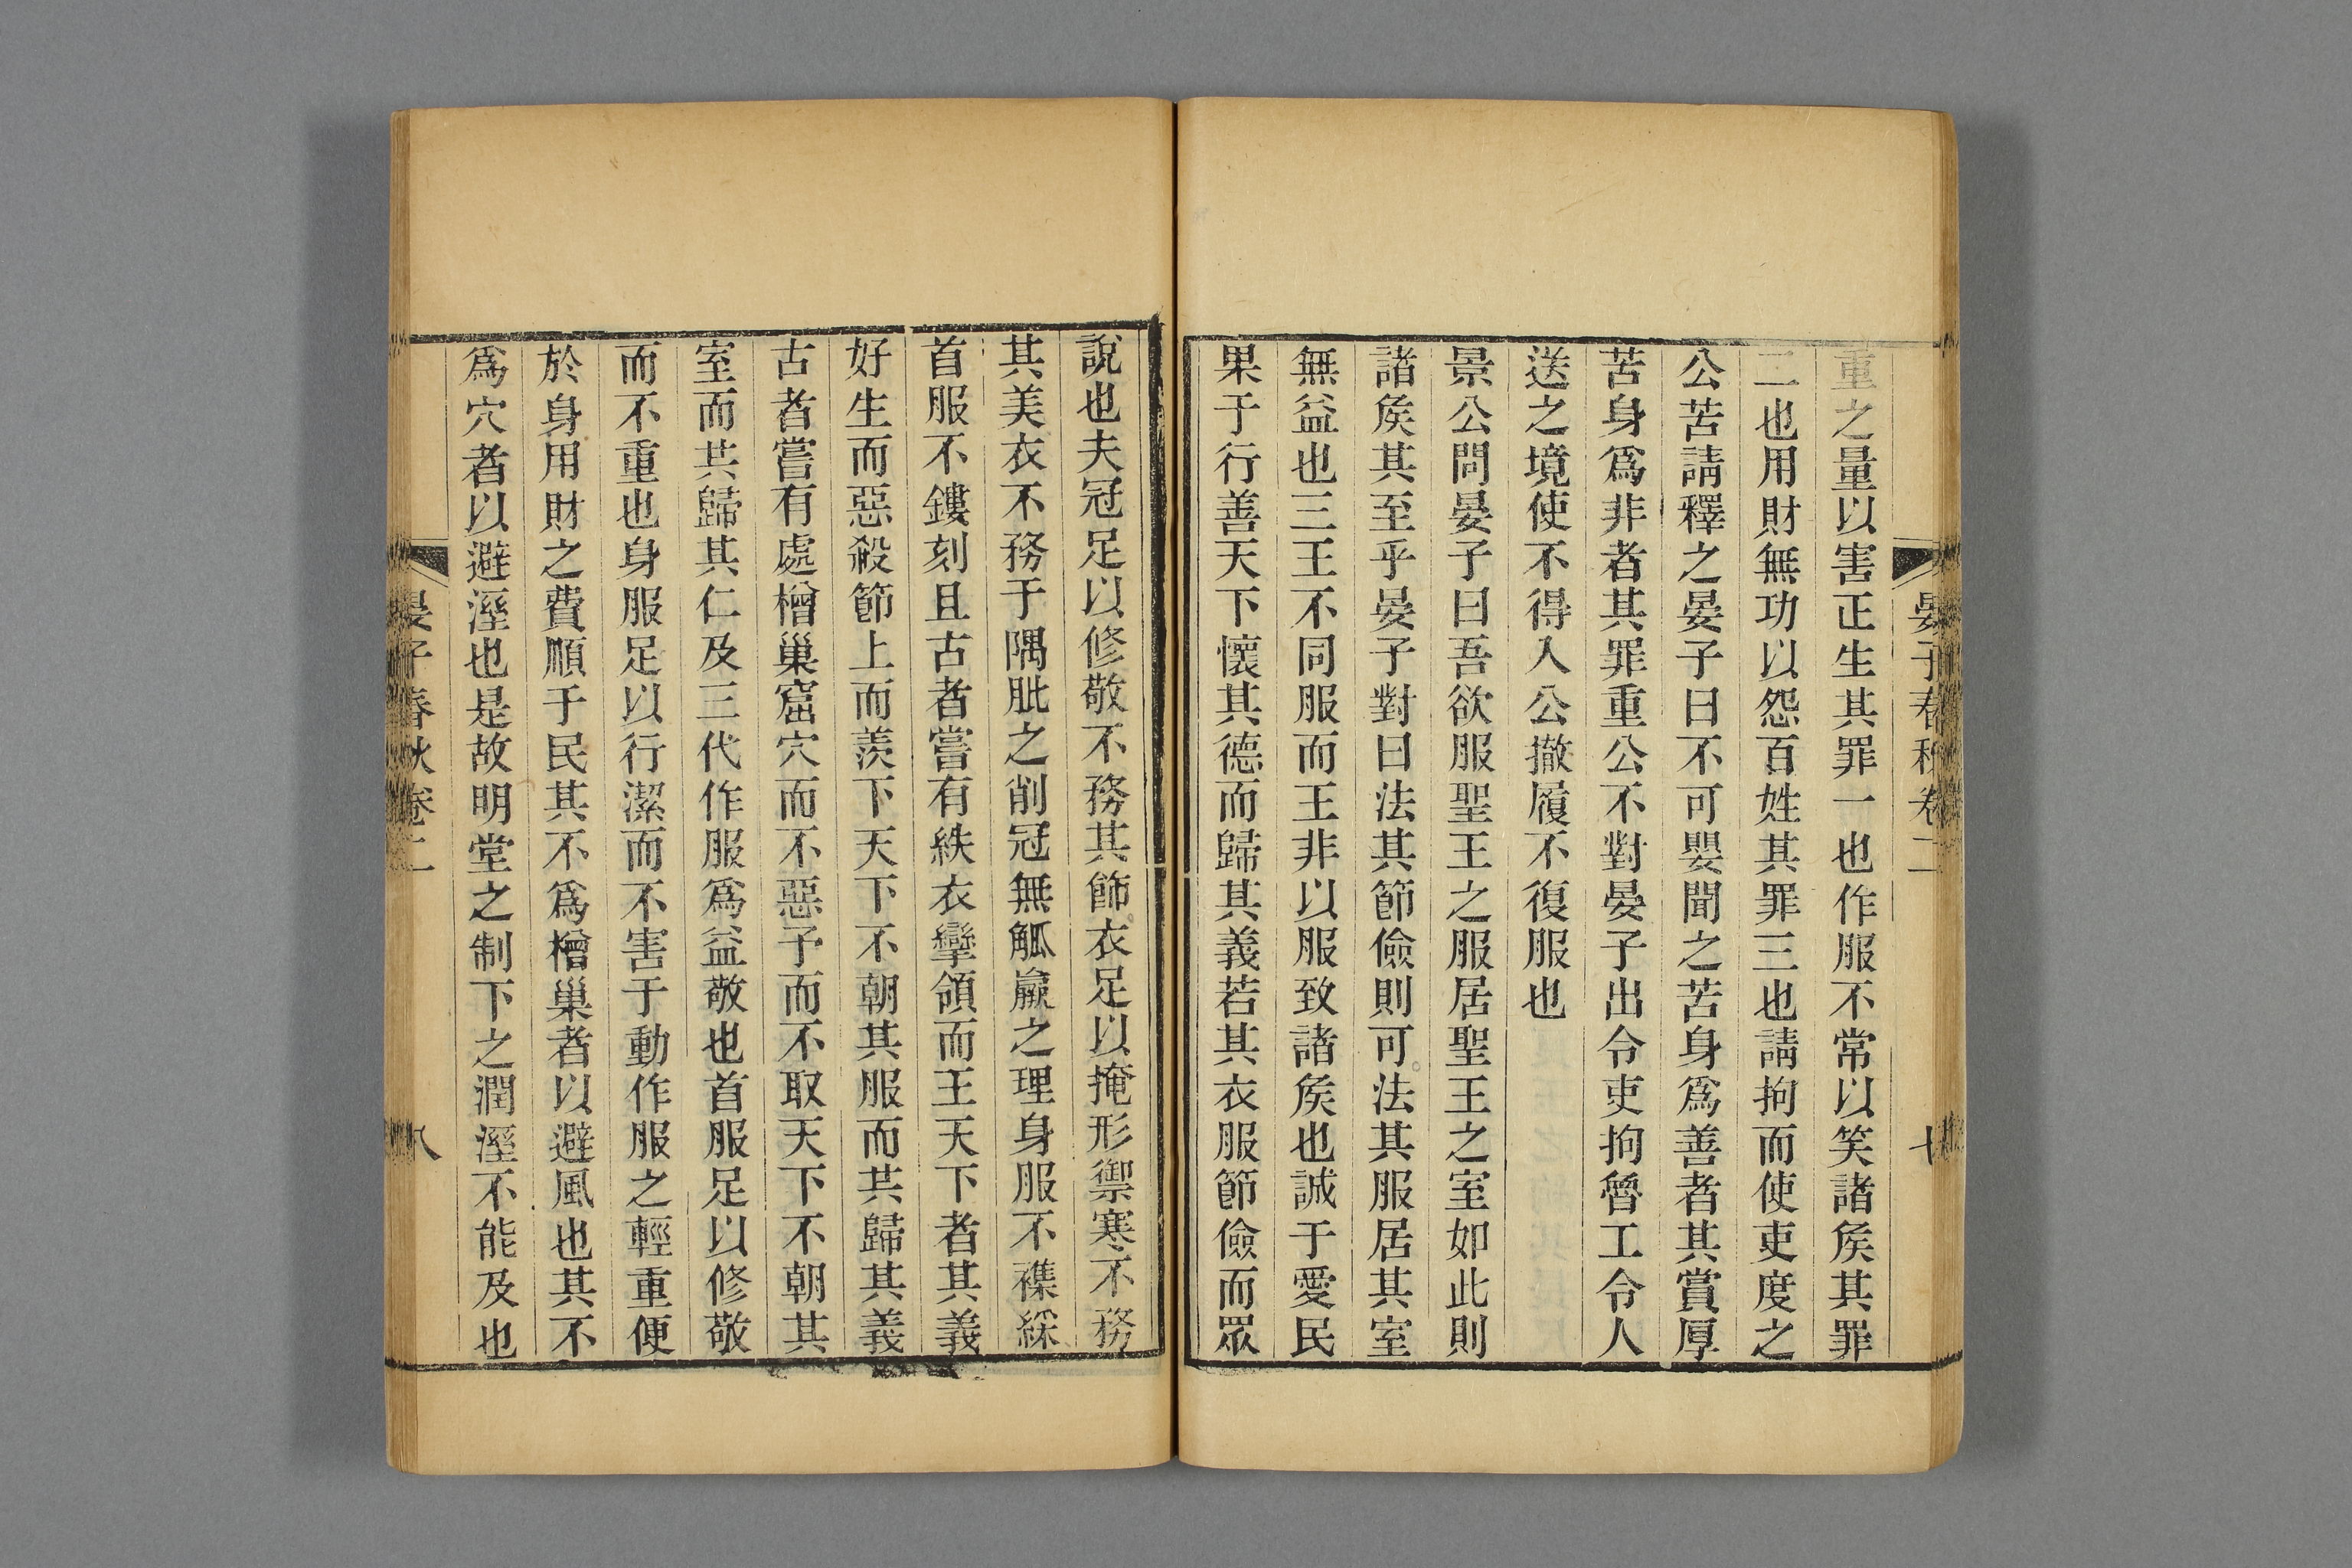 晏子春秋卷二
七
重之量以害正生其罪一也作服不常以笑諸矦其罪
二也用財無功以怨百姓其罪三也請拘而使吏度之
公苦請釋之晏子曰不可嬰聞之苦身爲善者其賞厚
苦身爲非者其罪重公不對晏子出令吏拘魯工令人
送之境使不得入公撤履不復服也
景公問晏子曰吾欲服聖王之服居聖王之室如此則
諸矦其至乎晏子對曰法其節儉則可法其服居其室
無益也三王不同服而王非以服致諸矦也誠于愛民
果于行善天下懷其德而歸其義若其衣服節儉而眾
說也夫冠足以修敬不務其飾衣足以掩形禦寒不務
其美衣不務于隅眦之削冠無觚蠃之理身服不襍綵
首服不鏤刻且古者嘗有紩衣攣領而王天下者其義
好生而惡殺節上而羨下天下不朝其服而共歸其義
古者嘗有處橧巢窟穴而不惡予而不取天下不朝其
室而共歸其仁及三代作服爲益敬也首服足以修敬
而不重也身服足以行潔而不害于動作服之輕重便
於身用財之費順于民其不爲橧巢者以避風也其不
爲穴者以避溼也是故明堂之制下之潤溼不能及也
晏子春秋卷二
八